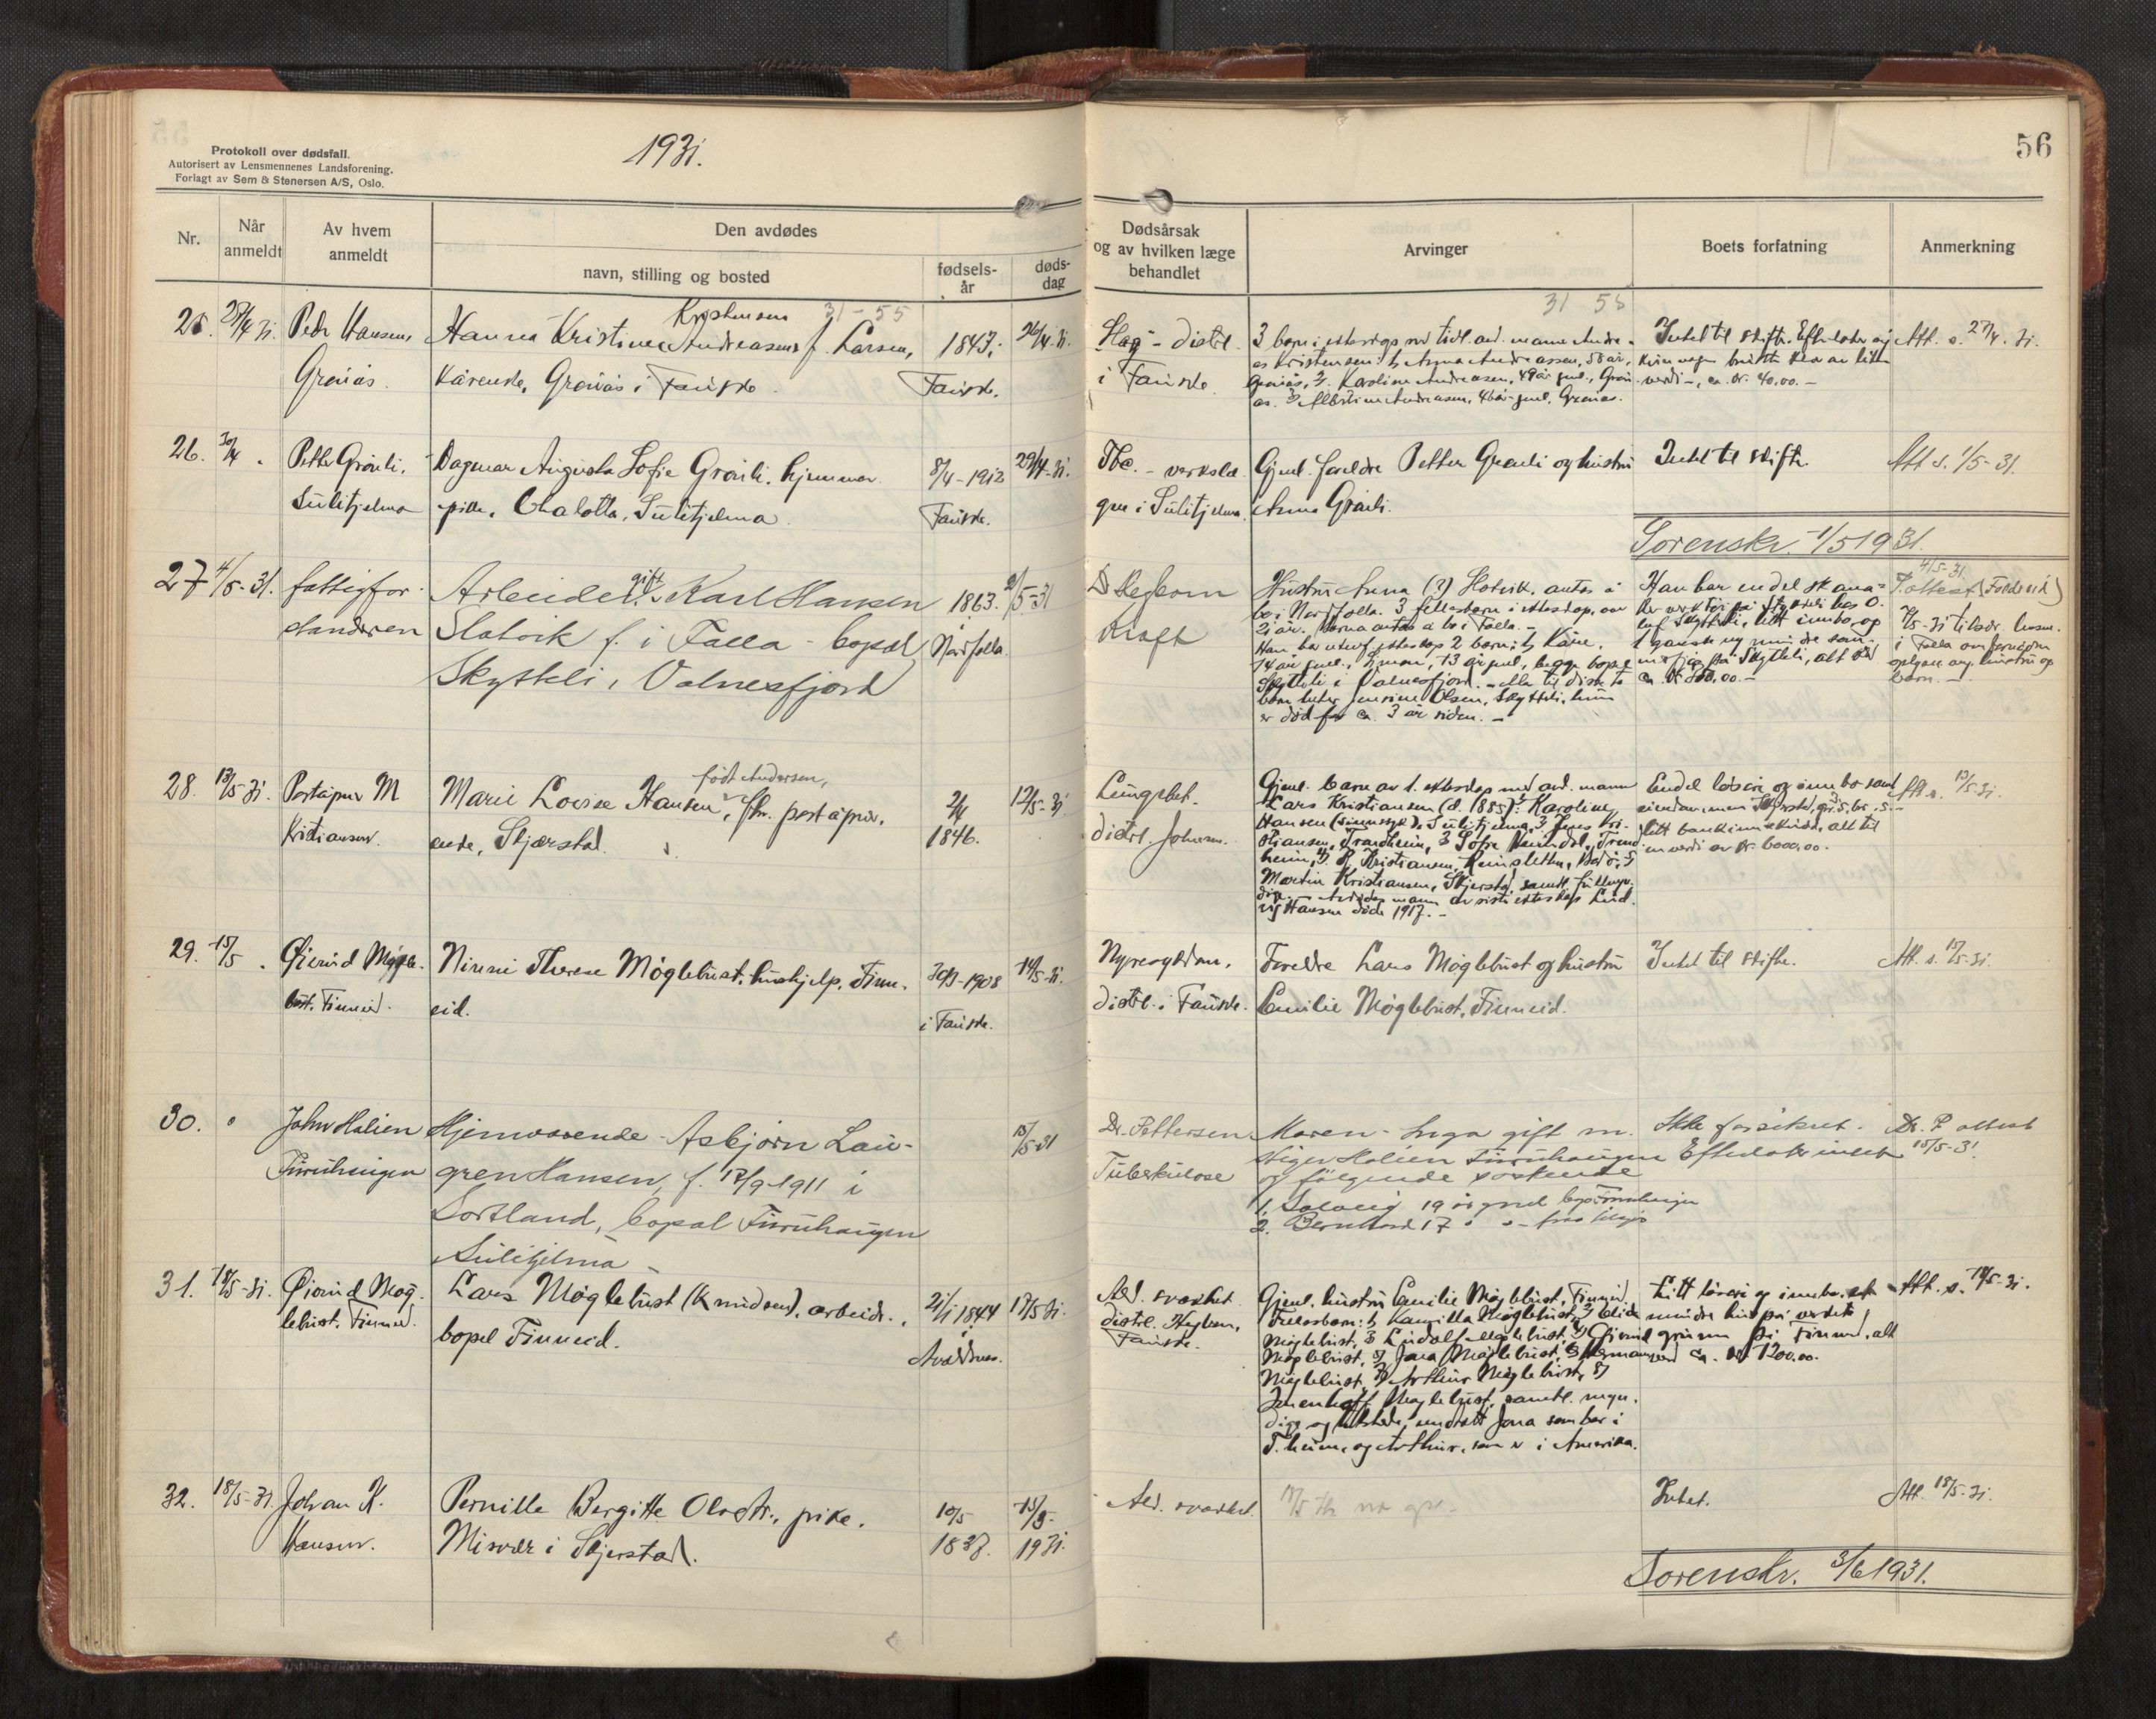 Protokoll over dødsfall.
Autorisert av Lensmennenes Landsforening.
Forlagt av Sem & Stenersen A/S, Oslo.
1931.
56
Nr.
Når anmeldt
Av hvem anmeldt
Den avdødes
navn, stilling og bosted
fødsels-
år
døds-
dag
Dødsårsak
og av hvilken læge
behandlet
Arvinger
Boets forfatning
Anmerkning
31 - 55
31 55
25. 27/4 31. Peder Hansen,
Grenås.
Kristensen
Hanna Kristine Andreasens f. Larsen,
Kårenste, Grenås i Fauske.
1847.
Fauske.
26/4-31.
Slag - distl.
i Fauske
3 barn i ekteskap med tidl. avd. mann Andre-
as Kristensen: 1. Anna Andreassen, 58 år,
Grenås, 2. Karoline Andreasen, 49 år gml., Gren-
ås. 3. Albertine Andreasen, 46 år gml. Grenås.
Intet til skifte. Efterlater sig
kun noen brukte klær av liten
verdi -, ca. kr. 40.00. -
Att. s. 27/4. 31.
26. 30/4 "
Petter Grønli,
Sulitjelma
Dagmar Augusta Sofie Grønli, hjemmev.
pike, Chalotta, Sulitjelma.
8/4-1912
Fauske.
29/4-31.
Tbc. - verkslæ
gen i Sulitjelma.
Gjenl. foreldre Petter Grønli og hustru
Anna Grønli.
Intet til skifte.
Att. s. 1/5-31.
Sorenskr. 1/5 1931.
27 4/5-31. fattigfor-
standeren
gift
Arbeider Karl Hansen
Slotvik f. i Folla - bopæl
Skytteli, Valnesfjord
1863.
Nordfolla.
2/5-31
D Kegborn
Kraft
Hustru Anna (?) Slotvik, antas å
bo i Nordfolla. 3 fellesbarn i ekteskap, over
21 år. Barna antas å bo i Folla. -
Han har utenf. ekteskap 2 barn: 1. Kåre,
14 år gml., 13 år gml., begge bopæl
Skytteli i Valnesfjord. - Mor til disse to
barn heter Jensine Olsen, Skytteli, hun
er død for ca. 3 år siden. -
Han har endel skoma-
ker verktøi på Skytteli hos O.
Skytteli, litt innbo, og
1 gansk ny mindre som
på Skytteli, alt verd
ca. kr. 800.00. -
4/5-31
attest (Foldereid)
7/5-31 tilskr. lensm.
i Folla om fornøden
oplysn. ang. hustru og
barn. -
28. 13/5-31. Poståpner M
Kristiansen.
født Andersen,
Marie Lovise Hansen, fhv. poståpner,
enke, Skjerstad.
2/4
1846.
12/5-31
Lungebet.
distl. Johnsen.
Gjenl. barn av 1. ekteskap med avd. mann
Lars Kristiansen (d. 1885): 1. Karoline
Hansen (sinnssyk), Sulitjelma, 2. Jens Kri-
stiansen, Trondheim, 3. Sofie Trond-
heim, 4. Kristiansen, Bodø, 5.
Martin Kristiansen, Skjerstad, samtl. fullmyn-
dige. - Avdødes mann av siste ekteskap Lud-
vig Hansen døde 1917. -
Endel løsøre og innbo samt
eiendommen Skjerstad, gr. br.
litt bankinnskudd, alt til
en verdi av kr. 6000.00.
Att. s. 13/5-31.
29. 15/5 "
Øivind Møgle-
bust, Finneid.
Ninni Therese Møglebust, hushjelp, Finn-
eid.
30/3-1908
i Fauske.
14/5-31.
Nyresykdom,
distl. i Fauske.
Foreldre Lars Møglebust og hustru
Emilie Møglebust, Finneid.
Intet til skifte.
Att. s. 15/5-31.
30. "
John Holien
Furuhaugen
Hjemværende Asbjørn Lau-
gren Hansen, f. 12/9-1911 i
Sortland, bopæl Furuhaugen
Sulitjelma -
15/5-31
Dr. Pettersen
Tuberkulose
Maren-Inga gift m.
stiger Holien Furuhaugen
og følgende søskende
1. Solveig 19 år gml bop Furuhaugen
2. Bernhard 17 " " -
Ikke forsikret.
Efterlater intet
Dr. P. attest
15/5-31.
31. 18/5-31. Øivind Møg-
lebust, Finneid.
Lars Møglebust (Knudsen), arbeider,
bopæl Finneid.
21/1 1844
i
17/5-31.
Ald. svakhet
distl. Kegborn,
Fauske.
Gjenl. hustru Emilie Møglebust, Finneid.
Fellesbarn: 1. Kamilla Møglebust, 2.
Møglebust, 3. Lindolf Møglebust, 4. Øivind
Møglebust, 5. Jona Møglebust, 6. Herman
Møglebust, 7. Arthur Møglebust, 8.
Møglebust, samtl. myn-
dige og tilstede, undtatt Jona som bor i
T.heim, og Arthur, som er i Amerika.
Litt løsøre og innbo, et
mindre hus på
grunn på Finneid, alt
verd ca. kr. 1200.00.
Att. s. 18/5-31.
32. 18/5-31. Johan K.
Hansen.
Pernille Bergitte Olsdtr., pike.
Misvær i Skjerstad.
10/5
1838.
15/5-
1931.
Ald. svakhet.
Intet.
Att. 18/5-31.
Sorenskr. 3/6 1931.